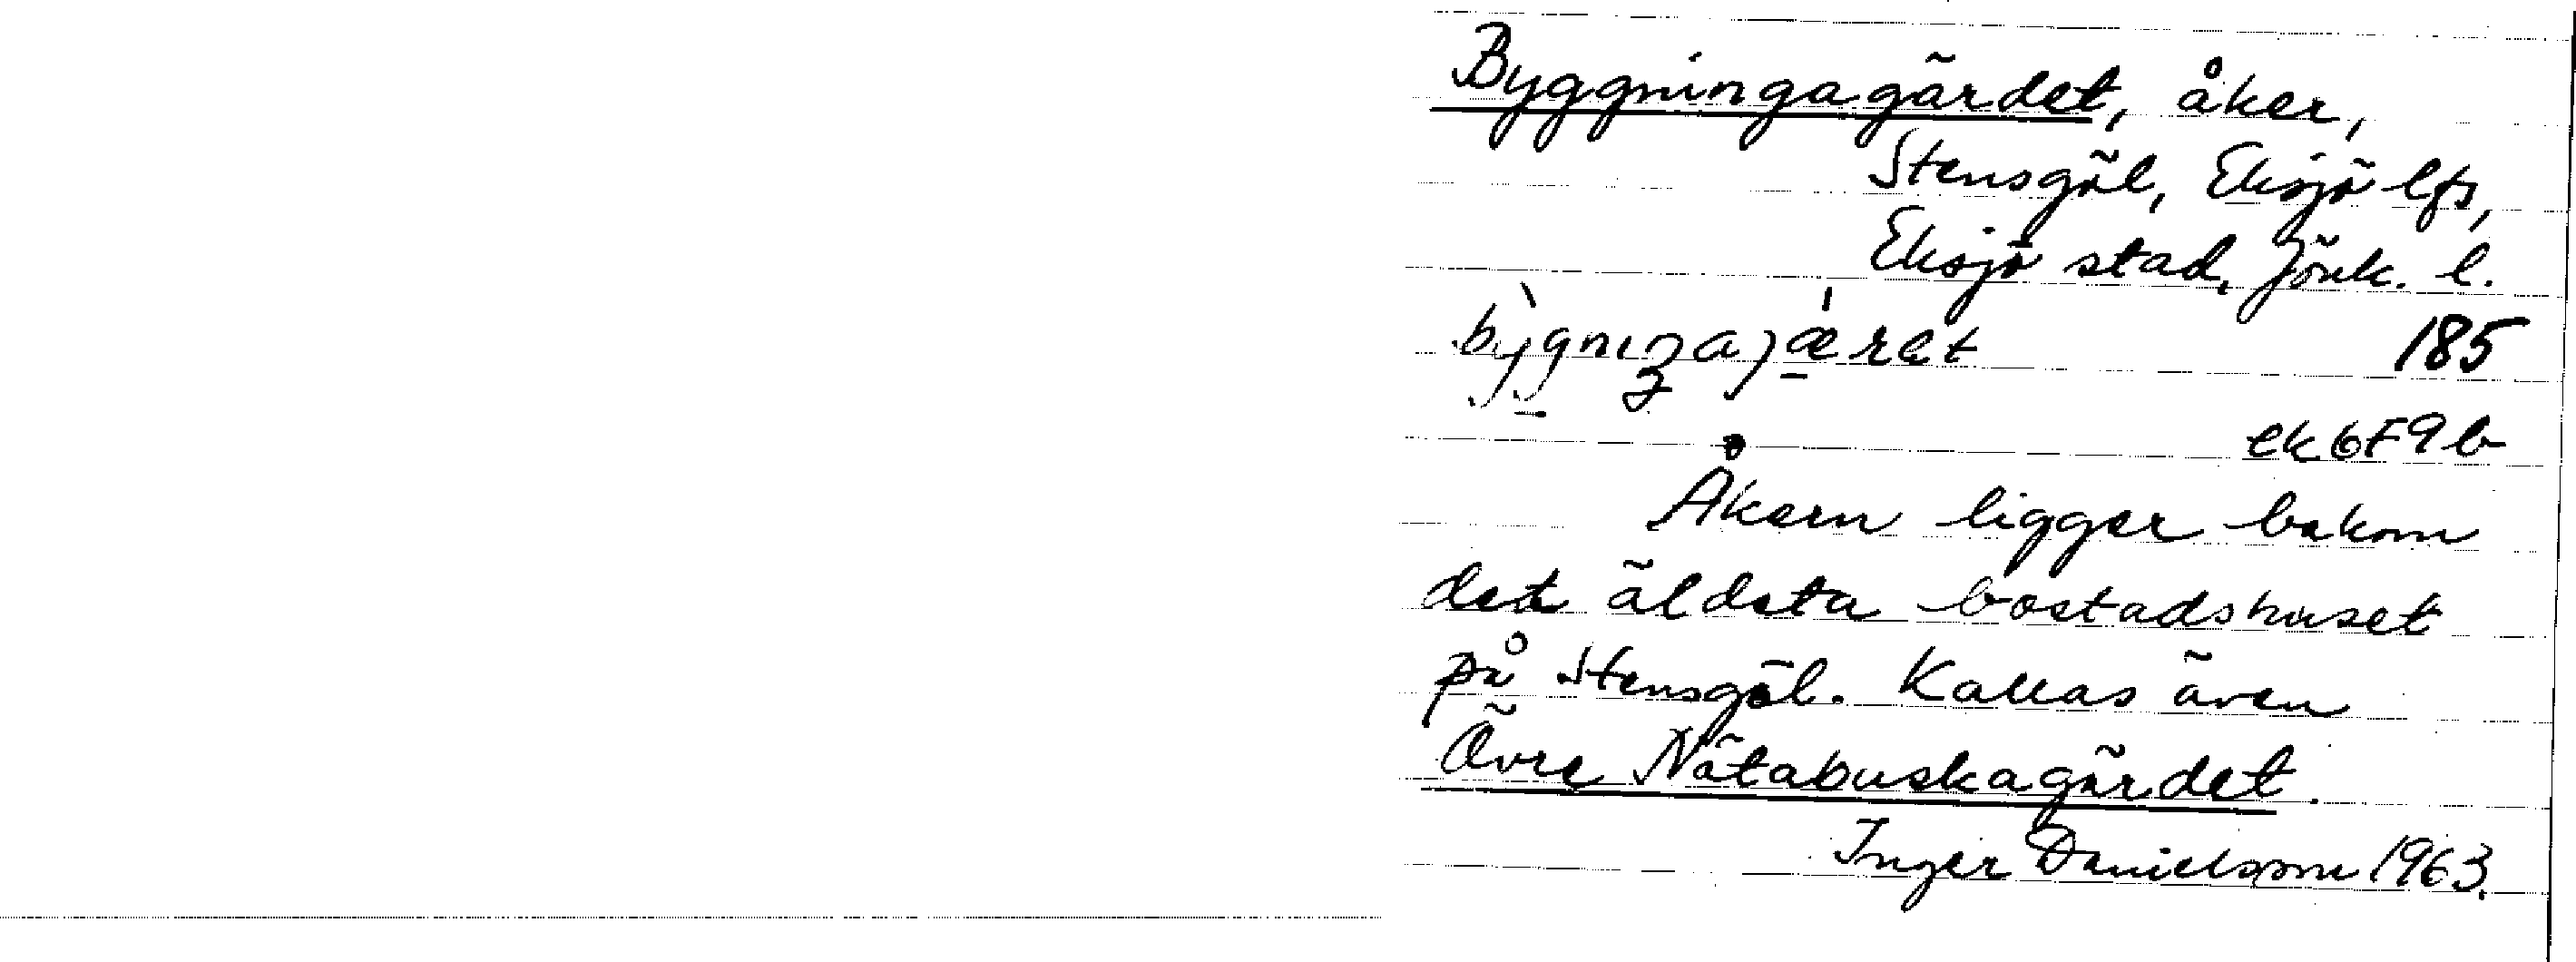 Byggningagärdet, åker,
Stensgöl, Eksjö lfs,
Eksjö stad, Jönk. l.
185
ek 6F9b
Åkern ligger bakom
det äldsta bostadshuset
på Stensgöl. Kallas även
Övre Nötabuskagärdet.
Inger Danielsson 1963.